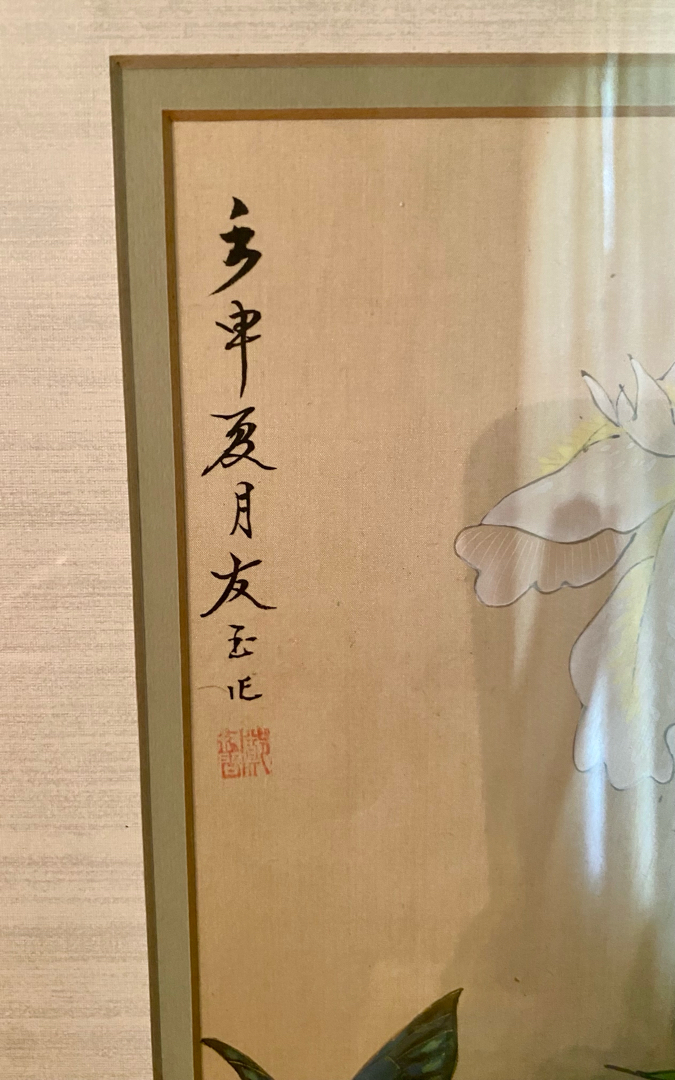 壬申夏月友玉作